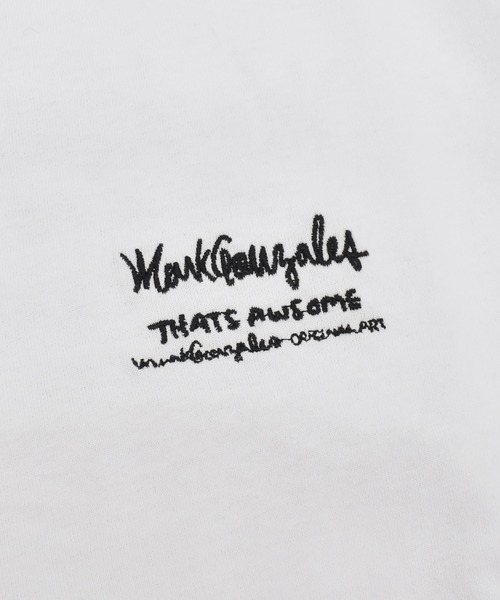 MarkGonzales
THATS AWSOME
MarkGonzales ORIGINAL ART